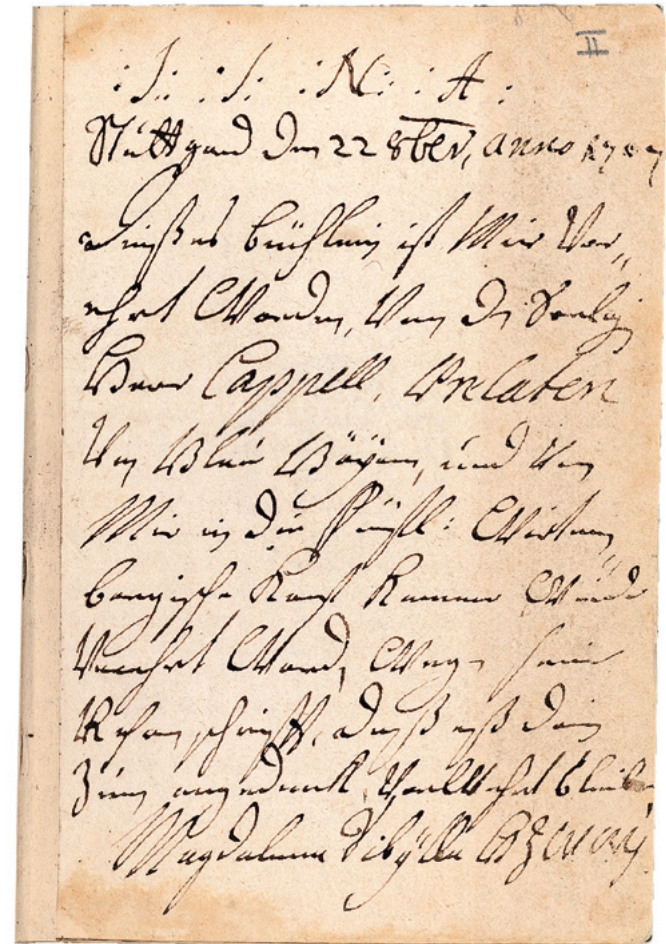 II
: J: : J: : N: : A :
Stuttgard den 22 8ber, anno 1707
dießes büchlein ist Mir Ver„
ehrt Worden, Von de Seelig
Herr Cappell, Prelaten
Von Blau Bäyren, und Von
Mir in die Fürstl: Wirtem„
bergische Kunst Kammer
Verehrt Word, Weg seiner
schrifft, daß eß dein
Zum angedenck, Verwahrt bleibe
Magdalena Sibÿlla